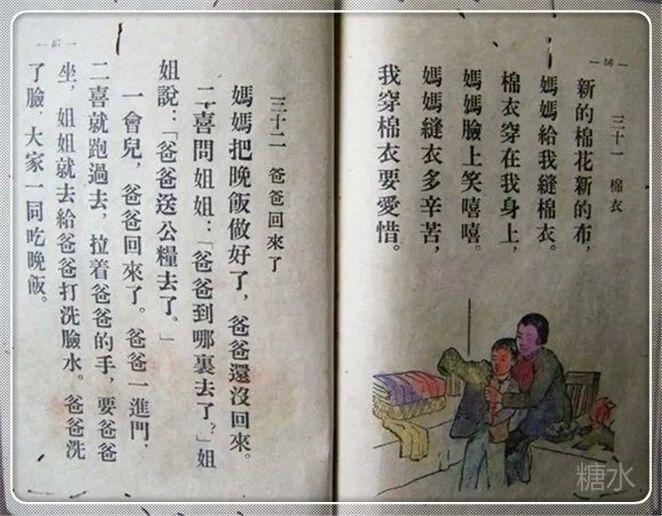 — 56 —
三十一　棉衣
新的棉花新的布，
媽媽給我縫棉衣。
棉衣穿在我身上，
媽媽臉上笑嘻嘻。
媽媽縫衣多辛苦，
我穿棉衣要愛惜。
— 57 —
三十二　爸爸回來了
媽媽把晚飯做好了，爸爸還沒回來。
二喜問姐姐：「爸爸到哪裏去了？」姐
姐說：「爸爸送公糧去了。」
一會兒，爸爸回來了。爸爸一進門，
二喜就跑過去，拉着爸爸的手，要爸爸
坐，姐姐就去給爸爸打洗臉水。爸爸洗
了臉，大家一同吃晚飯。
糖水